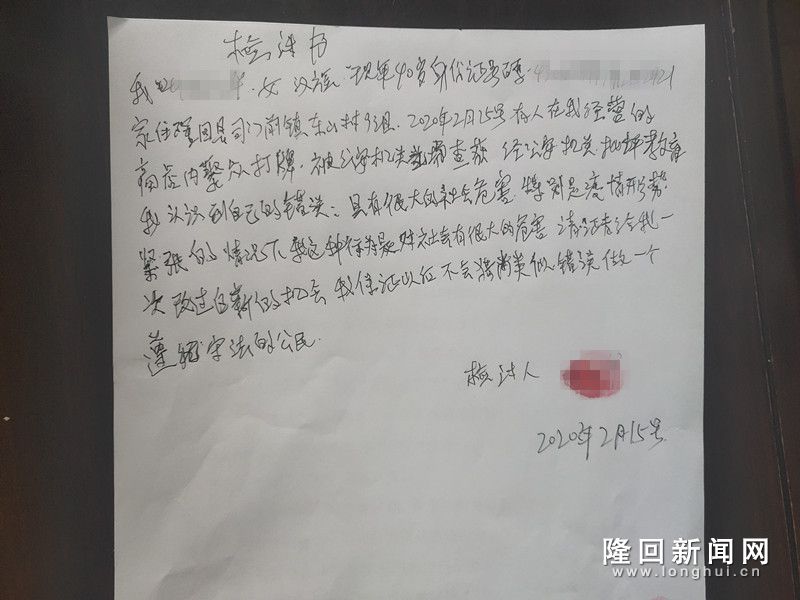 检讨书
我 女 汉族 现年40岁身份证号码 21
家住隆回县司门前镇东山村 组.2020年2月15号有人在我经营的
商店内聚众打牌.被公安机关当场查获 经公安机关批评教育
我认识到自己的错误:具有很大的社会危害.特别是疫情形势
紧张的情况下 我这种行为是对社会有很大的危害 请 给我一
次改过自新的机会 我保证以后不会 类似错误 做一个
遵纪守法的公民.
检讨人
2020年2月15号
隆回新闻网
www.longhui.cn